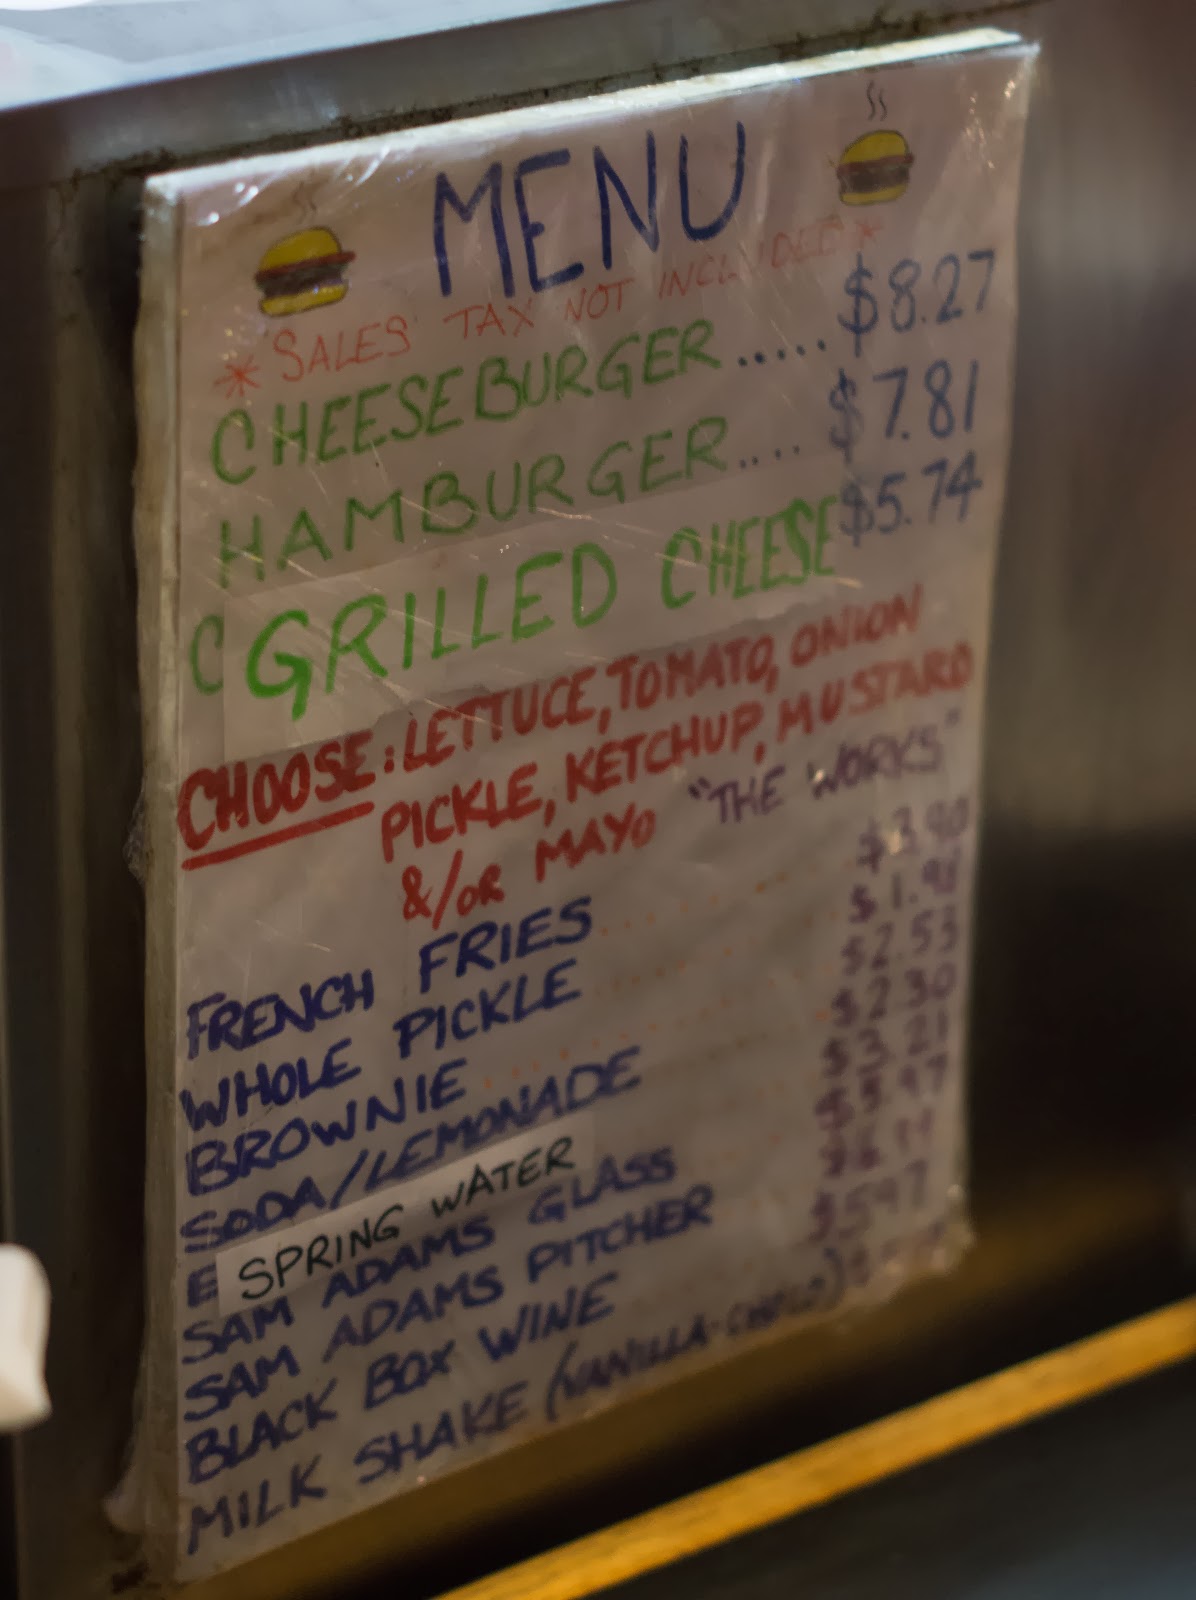 MENU
*SALES TAX NOT INCLUDED*
CHEESEBURGER..... $8.27
HAMBURGER.... $7.81
C GRILLED CHEESE $5.74
CHOOSE: LETTUCE, TOMATO, ONION
PICKLE, KETCHUP, MUSTARD
&/OR MAYO "THE WORKS"
FRENCH FRIES $3.90
WHOLE PICKLE
BROWNIE $2.53
SODA/LEMONADE $2.30
E SPRING WATER $3.21
SAM ADAMS GLASS
SAM ADAMS PITCHER
BLACK BOX WINE
MILK SHAKE (VANILLA-CHOCO)